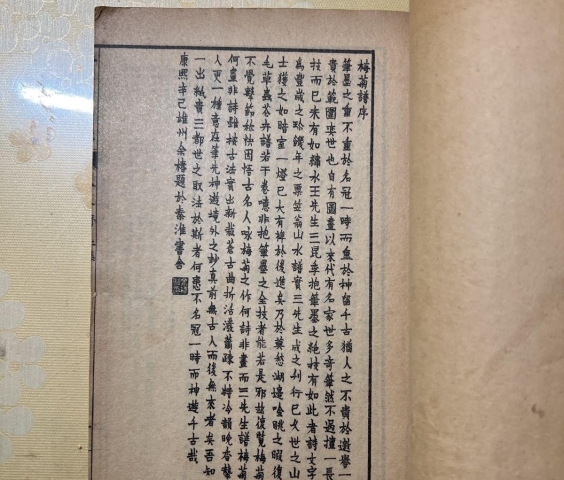 梅菊譜序
筆墨之重不重於名冠一時而重於神留千古猶人之不貴於遊譽一
貴於範圍奕世也自有圖畫以來代有名家世多奇筆然不過擅一長
技而已未有如繡水王先生三昆季抱筆墨之絶技有如此者詩文字
為豐歲之珍饑年之粟笠翁山水譜實三先生成之刋行已久世之山
士獲之如暗室一燈已大有裨於後進矣乃於莫愁湖邊唫眺之暇復
毛草蟲花卉譜若干卷噫非抱筆墨之全技者能若是邪故復覽梅菊
不覺擊節起快因悟古名人咏梅菊之作何詩非畫而三先生譜梅菊
何畫非詩雖按古法實出新裁蒼古曲折活潑蕭疎不特冷韻晚香
人更一種意在筆先神遊境外之妙真前無古人而後無來者矣吾知
一出紙貴三都世之取法於斯者何患不名冠一時而神遊千古哉
康熙辛巳雄州余椿題於秦淮書舍